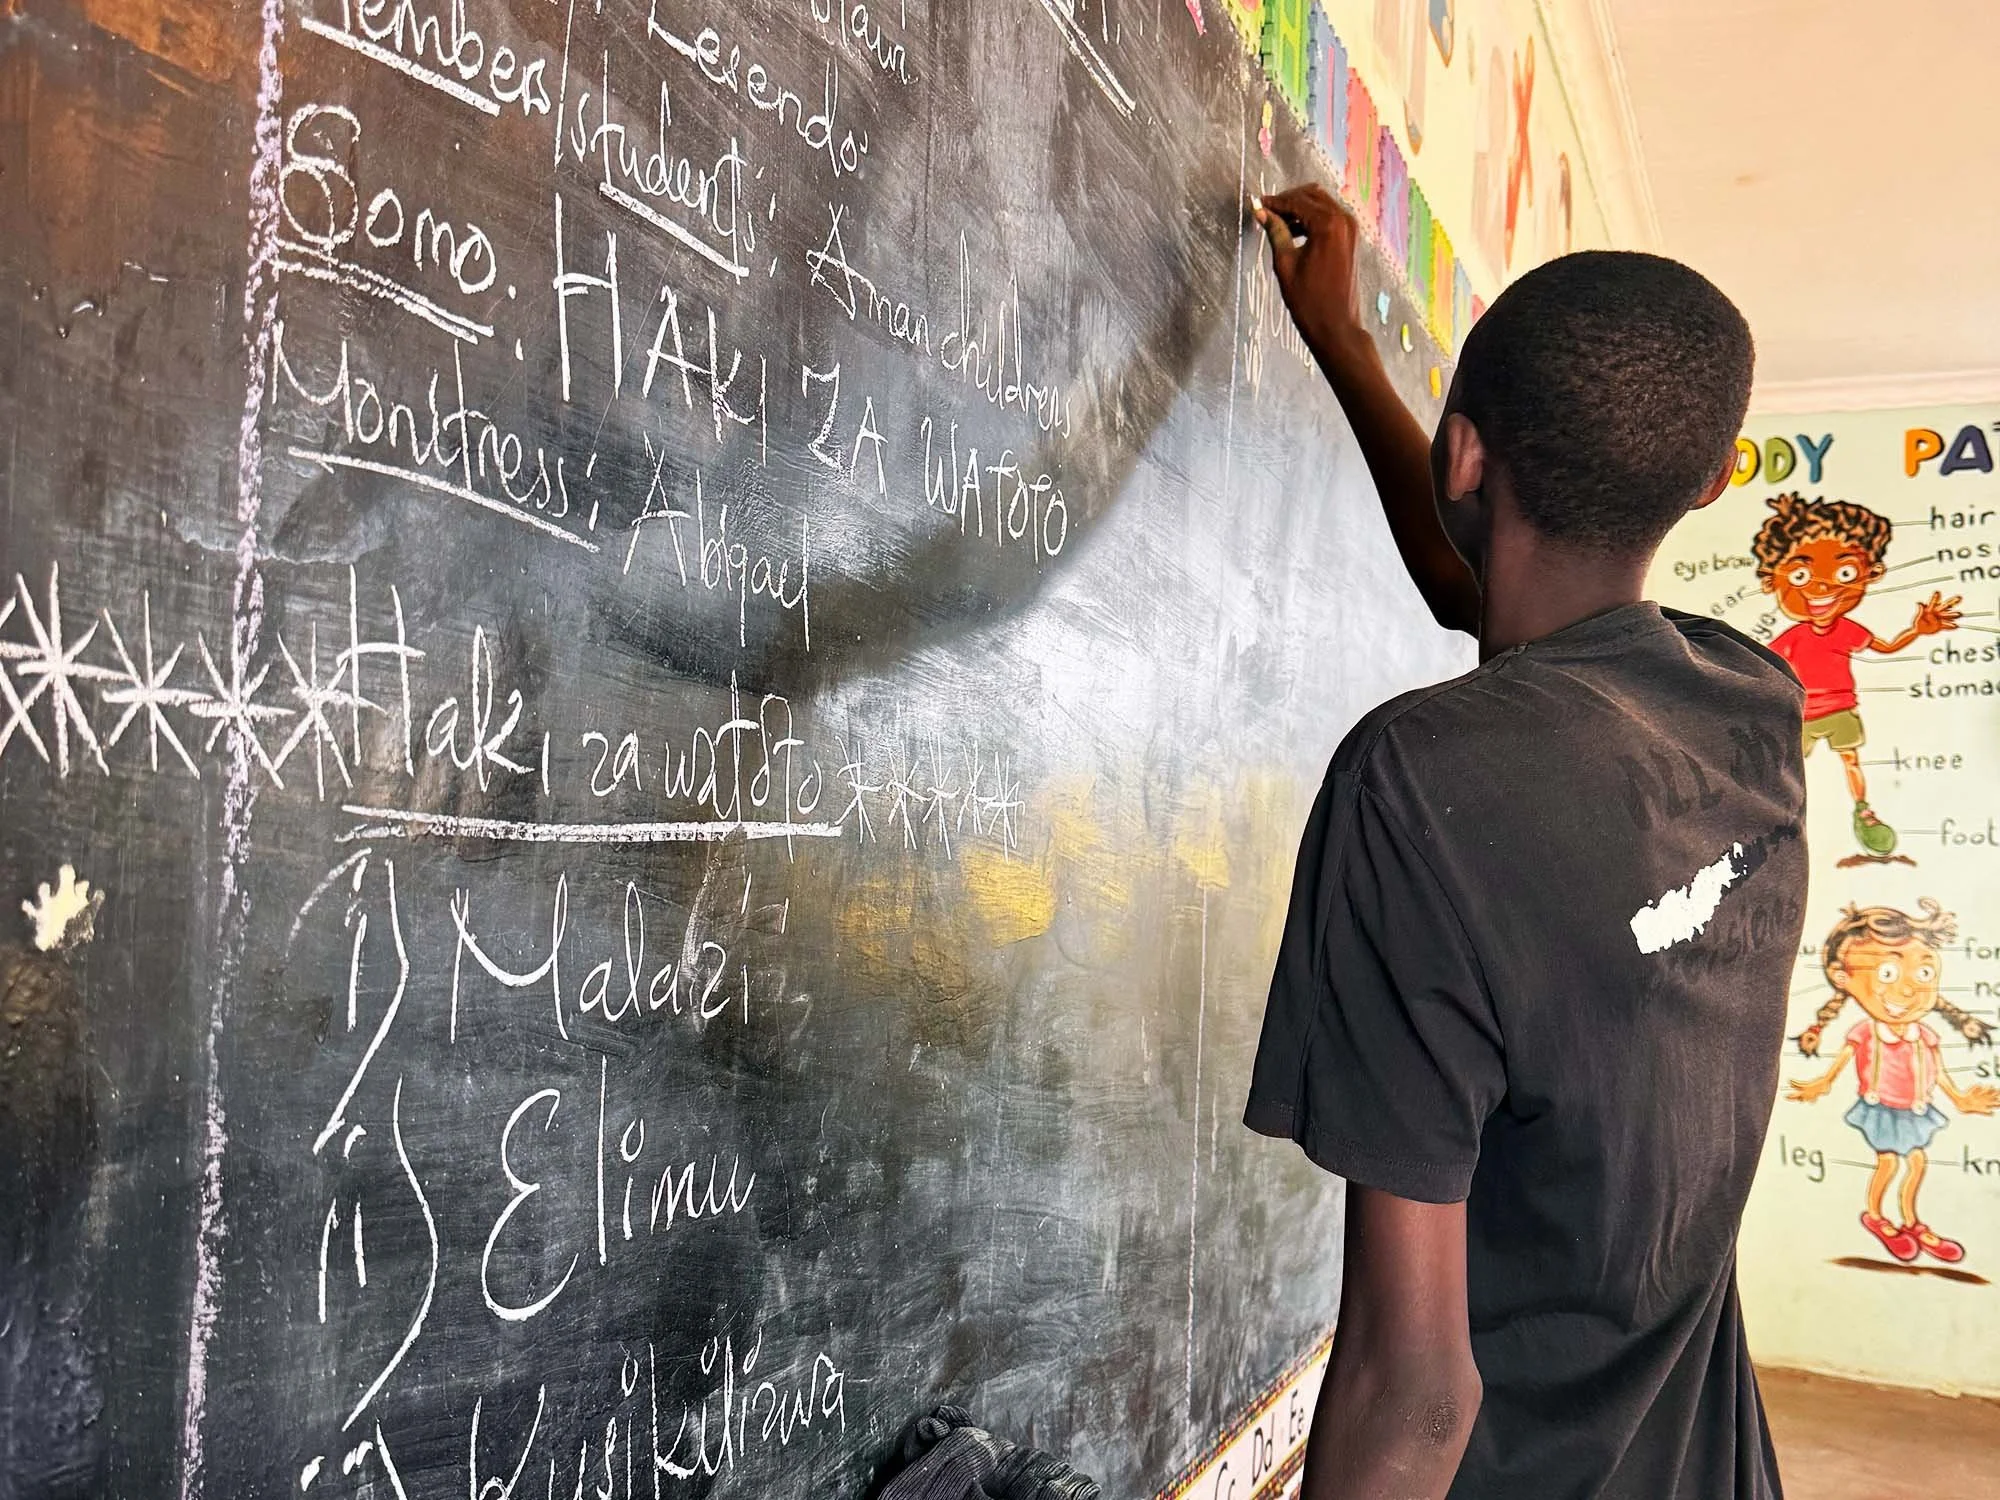 Lesendo:
students: Aman childrens
Somo: HAKI ZA WATOTO
Monitress: Abigael
****Haki za watoto*****
i) Malazi
ii) Elimu
Kusikilizwa
ODY PA
hair
eyebrow
ear
eye
chest
stomac
knee
foot
leg
Cc Dd Ee